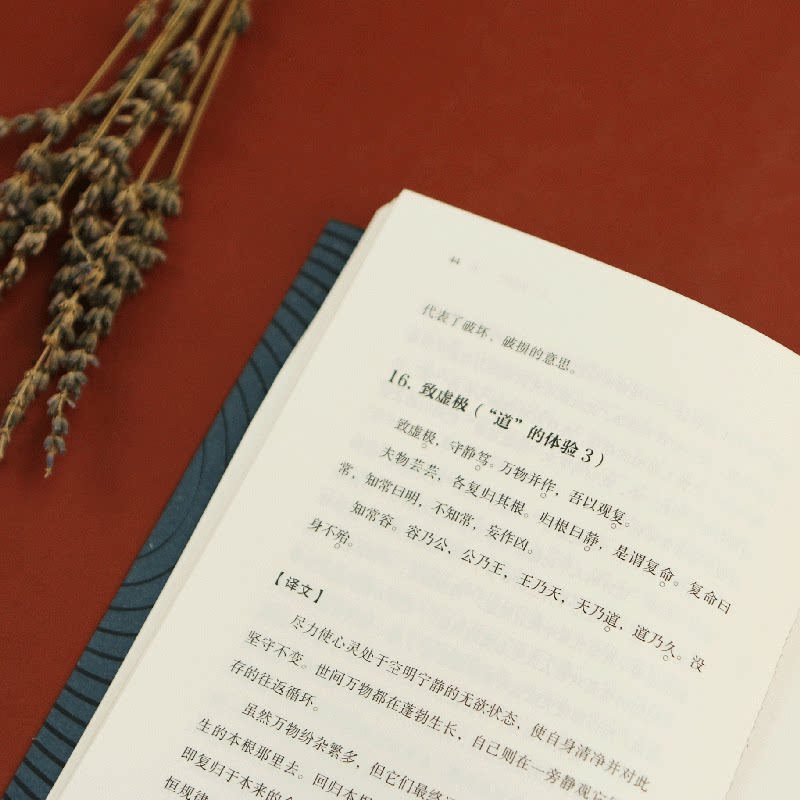 44
代表了破坏、破损的意思。
16. 致虚极（“道”的体验3）
致虚极，守静笃。万物并作，吾以观复。
夫物芸芸，各复归其根。归根曰静，是谓复命。复命曰
常，知常曰明，不知常，妄作凶。
知常容。容乃公，公乃王，王乃天，天乃道，道乃久。没
身不殆。
【译文】
尽力使心灵处于空明宁静的无欲状态，使自身清净并对此
坚守不变。世间万物都在蓬勃生长，自己则在一旁静观它
存的往返循环。
虽然万物纷杂繁多，但它们最终
生的本根那里去。回归本根
即复归于本来的
恒规律